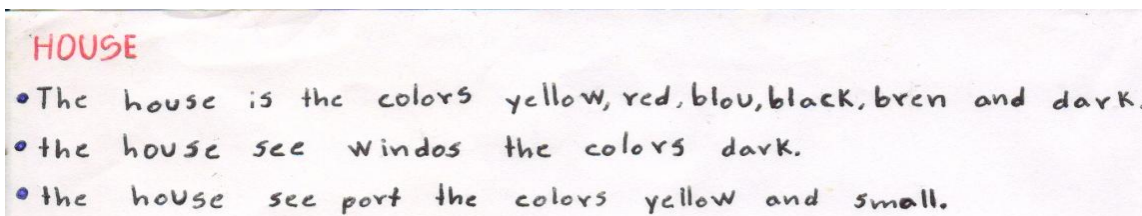 HOUSE
• The house is the colors yellow, red, blou, black, bren and dark.
• the house see windos the colors dark.
• the house see port the colors yellow and small.